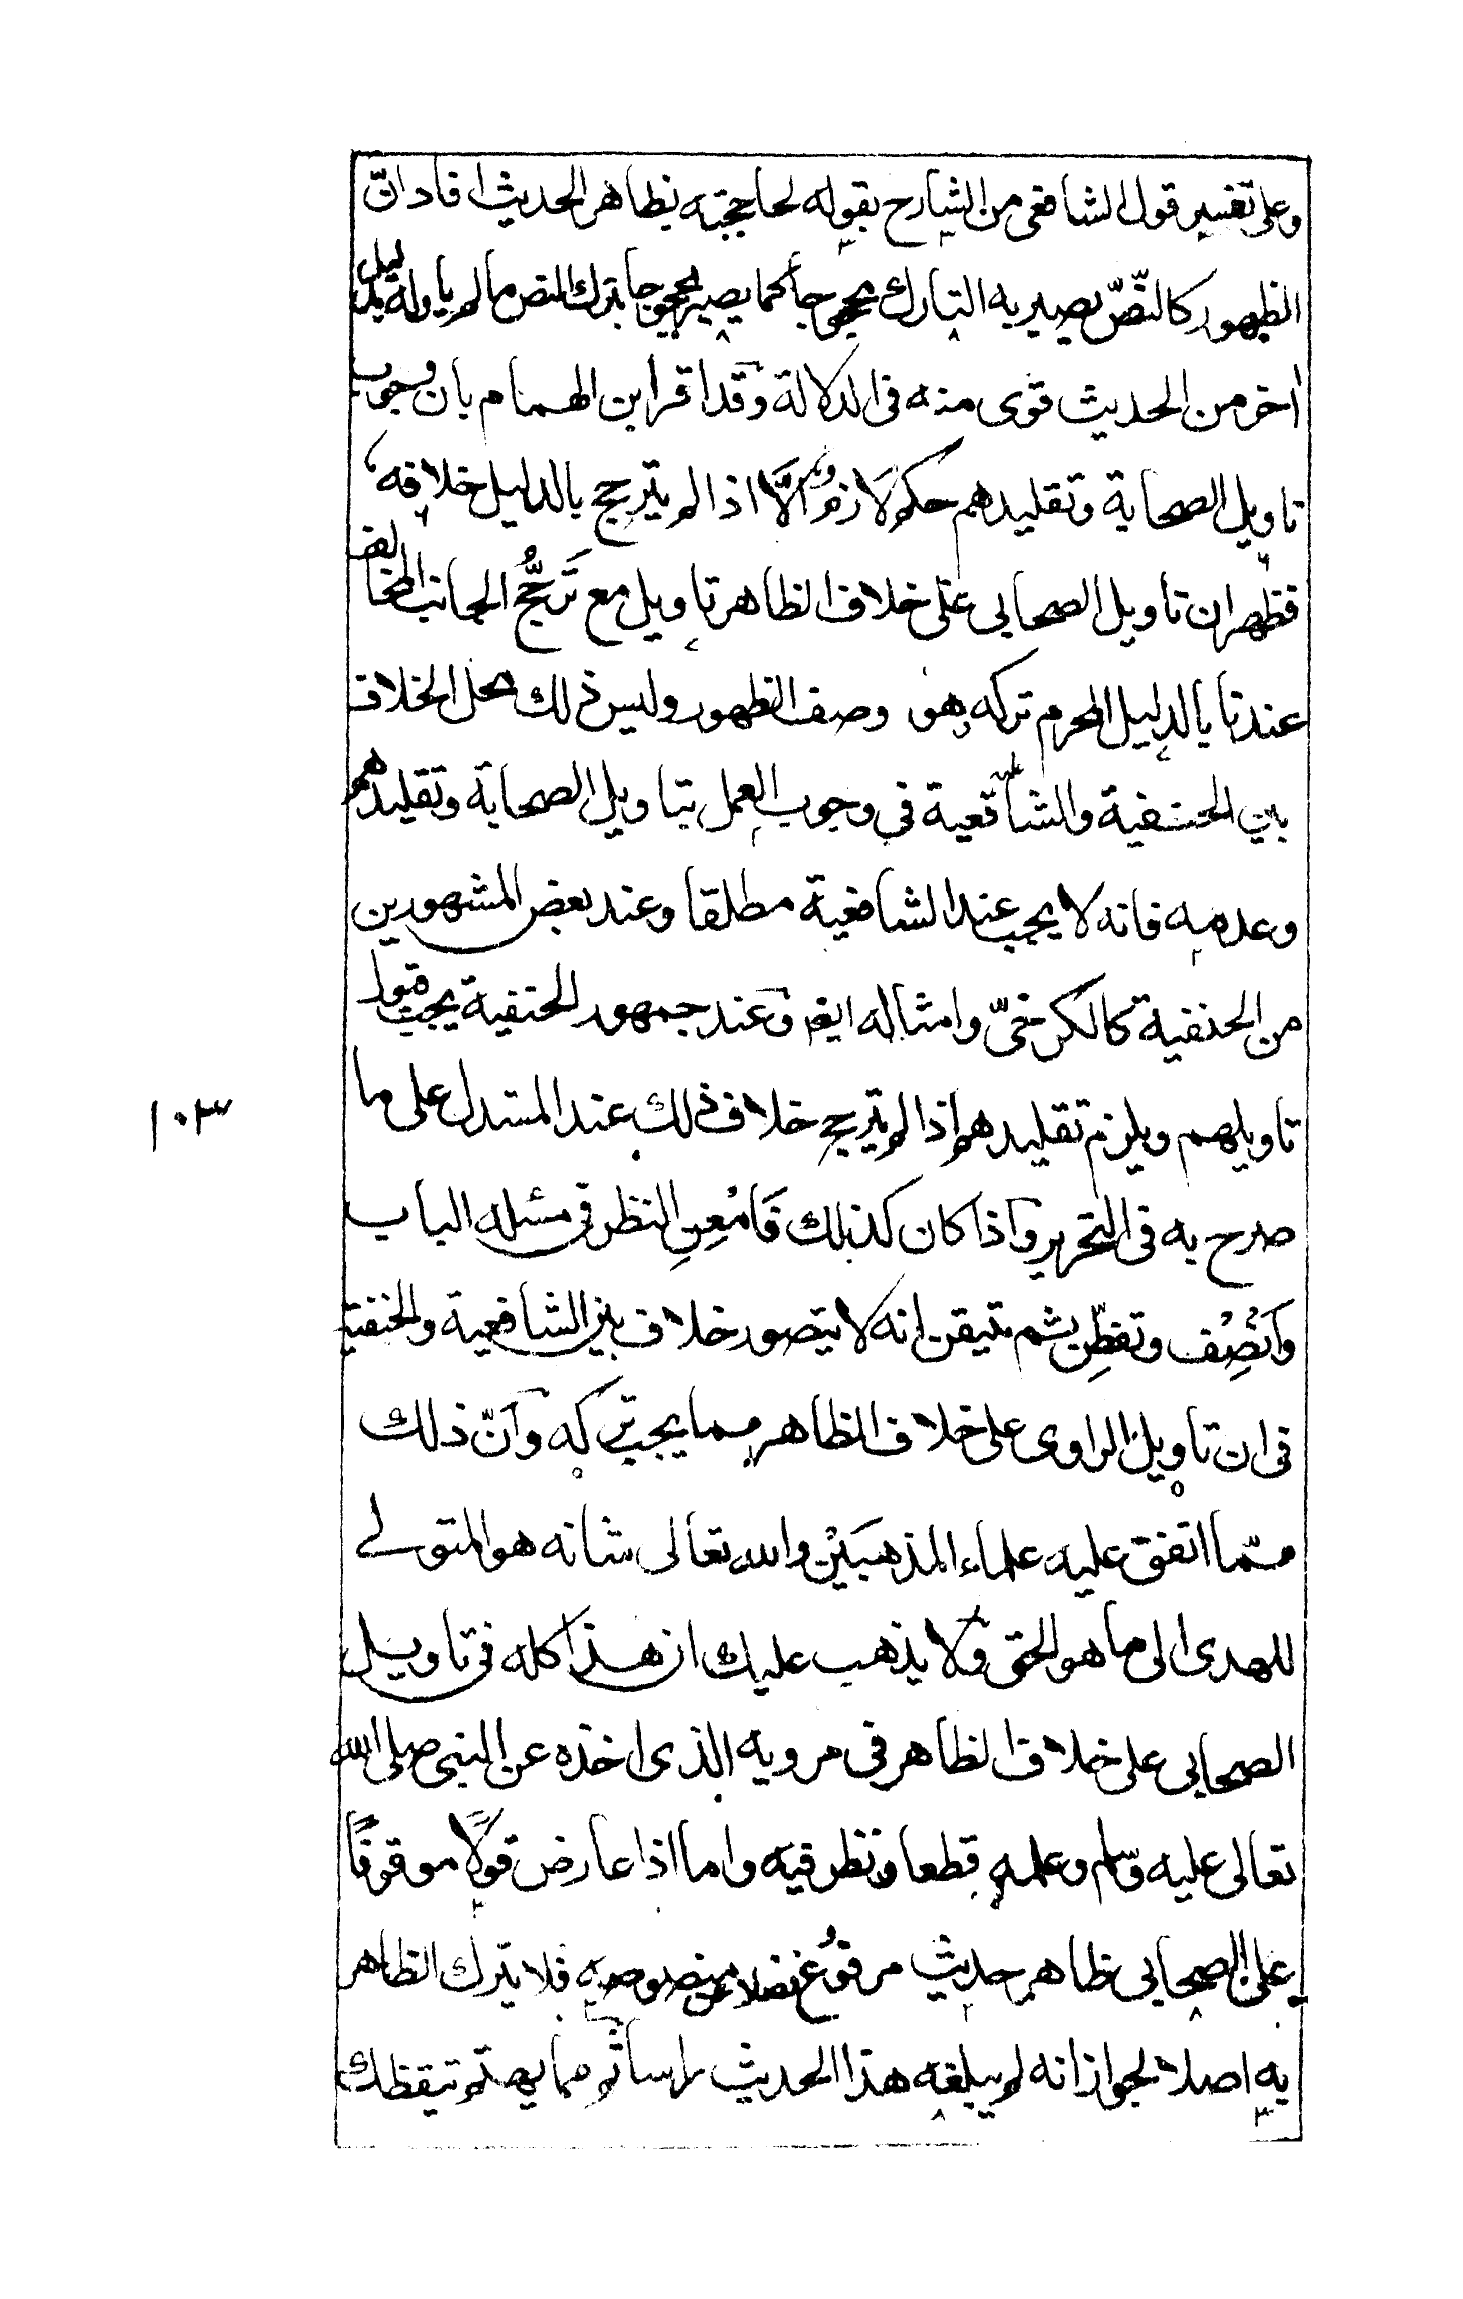 وعلى تفسير قول الشافعى من الشارح بقوله لحاججته بظاهر الحديث افاد انّ
الظهور كالنصّ يصير به التارك محجوجا كما يصير محجوجا بترك النص ما لم ياوله بدليل
اخر من الحديث قوى منه فى الدلالة وقد اقر ابن الهمام بان وجوب
تاويل الصحابة وتقليدهم حكم لازم والّا اذا لم يترجح بالدليل خلافه
فظهر ان تاويل الصحابى على خلاف الظاهر تاويل مع ترجُّح الجانب المخالف
عندنا بالدليل المحرم تركه وهو وصف الظهور وليس ذلك محل الخلاف
بين الحنفية والشافعية فى وجوب العمل بتاويل الصحابة وتقليدهم
وعدمه فانه لا يجب عند الشافعية مطلقا وعند بعض المشهورين
من الحنفية كالكرخىّ وامثاله ايضا وعند جمهور الحنفية يجب قبول
تاويلهم ويلزم تقليدهم اذا لم يترجح خلاف ذلك عند المستدل على ما
صرح به فى التحرير واذا كان كذلك فَامْعِنِ النظر فى مسئله الباب
وَاَنْصِفْ وتفطّن بشم تتيقن انه لا يتصور خلاف بين الشافعية والحنفية
فى ان تاويل الراوى على خلاف الظاهر مما يجب تركه وانّ ذلك
ممّا اتفق عليه علماء المذهبَيْن والله تعالى شانه هو المتولے
للهدى الى ما هو الحق ولا يذهب عليك ان هذا كله فى تاويل
الصحابى على خلاف الظاهر فى مرويه الذى اخذه عن النبى صلى الله
تعالى عليه وسلم وعلمه قطعا ونظر فيه واما اذا عارض قولًا موقوفًا
على الصحابى ظاهر حديث مرفوع فضلا عن منصوصه فلا يترك الظاهر
به اصلا لجواز انه لم يبلغه هذا الحديث راسا ثم مما يهتم تيقظك
١٠٣